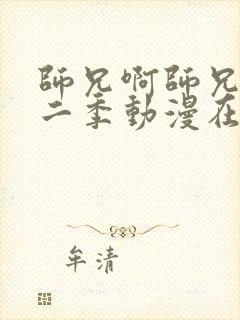 師兄啊師兄
二季動漫在
牟清